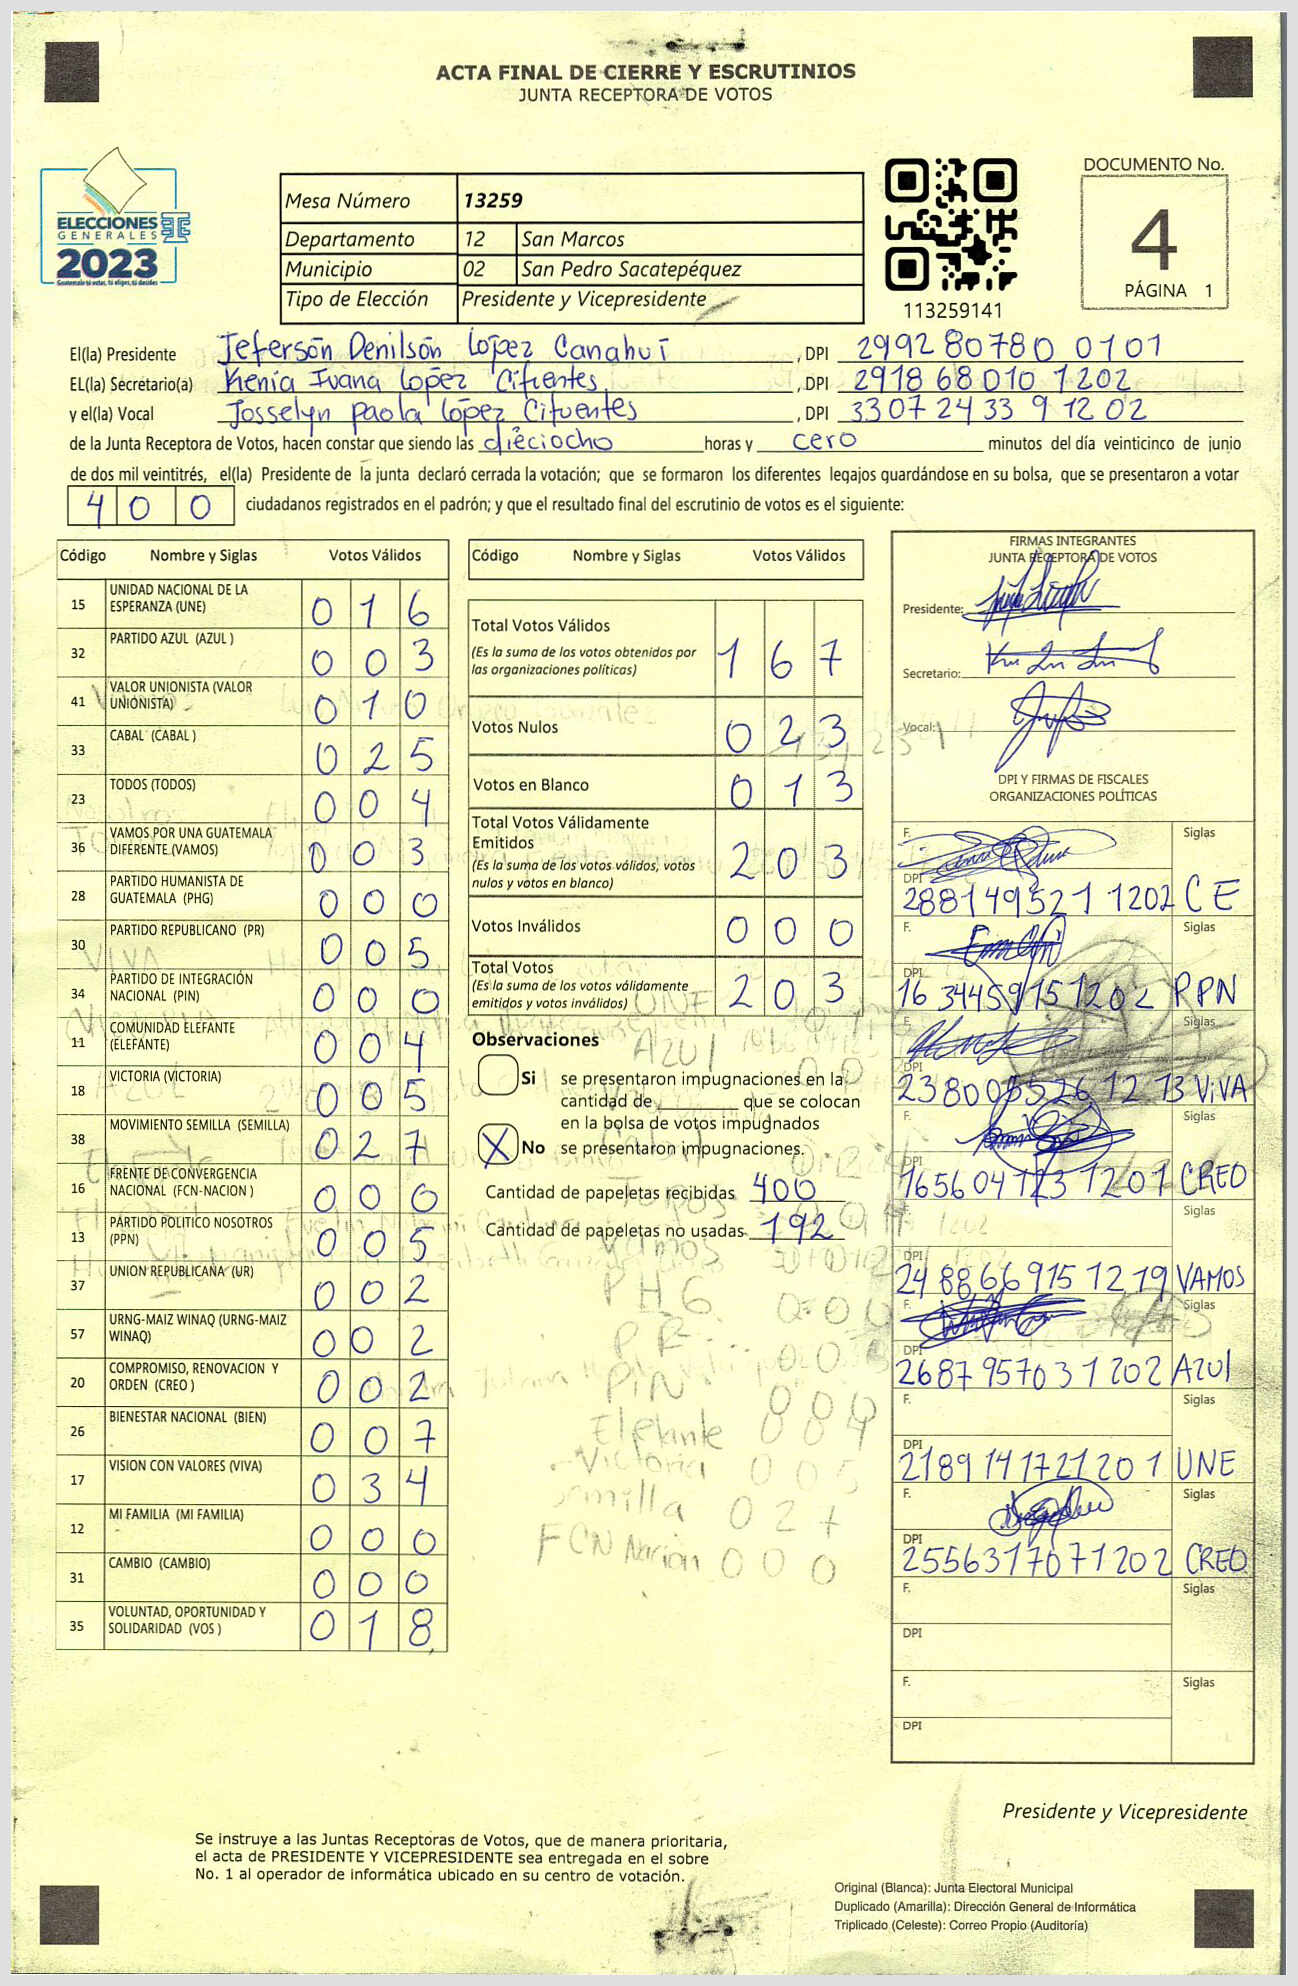 ACTA FINAL DE CIERRE Y ESCRUTINIOS
JUNTA RECEPTORA DE VOTOS
ELECCIONES
GENERALES
2023
Guatemala tú votas, tú eliges, tú decides
Mesa Número 13259
Departamento 12 San Marcos
Municipio 02 San Pedro Sacatepéquez
Tipo de Elección Presidente y Vicepresidente
113259141
DOCUMENTO No.
4
PÁGINA 1
El(la) Presidente Jefersón Denilsón López Canahuí, DPI 2992 80780 0101
EL(la) Secretario(a) Kenia Ivana López Cifuentes, DPI 2918 68010 1202
y el(la) Vocal Josselyn paola López Cifuentes, DPI 3307 24339 1202
de la Junta Receptora de Votos, hacen constar que siendo las dieciocho horas y cero minutos del día veinticinco de junio
de dos mil veintitrés, el(la) Presidente de la junta declaró cerrada la votación; que se formaron los diferentes legajos guardándose en su bolsa, que se presentaron a votar
400 ciudadanos registrados en el padrón; y que el resultado final del escrutinio de votos es el siguiente:
Código Nombre y Siglas Votos Válidos
15 UNIDAD NACIONAL DE LA ESPERANZA (UNE) 016
32 PARTIDO AZUL (AZUL ) 003
41 VALOR UNIONISTA (VALOR UNIONISTA) 010
33 CABAL (CABAL ) 025
23 TODOS (TODOS) 004
36 VAMOS POR UNA GUATEMALA DIFERENTE (VAMOS) 003
28 PARTIDO HUMANISTA DE GUATEMALA (PHG) 000
30 PARTIDO REPUBLICANO (PR) 005
34 PARTIDO DE INTEGRACIÓN NACIONAL (PIN) 000
11 COMUNIDAD ELEFANTE (ELEFANTE) 004
18 VICTORIA (VICTORIA) 005
38 MOVIMIENTO SEMILLA (SEMILLA) 027
16 FRENTE DE CONVERGENCIA NACIONAL (FCN-NACION ) 000
13 PARTIDO POLITICO NOSOTROS (PPN) 005
37 UNION REPUBLICANA (UR) 002
57 URNG-MAIZ WINAQ (URNG-MAIZ WINAQ) 002
20 COMPROMISO, RENOVACION Y ORDEN (CREO ) 002
26 BIENESTAR NACIONAL (BIEN) 007
17 VISION CON VALORES (VIVA) 034
12 MI FAMILIA (MI FAMILIA) 000
31 CAMBIO (CAMBIO) 000
35 VOLUNTAD, OPORTUNIDAD Y SOLIDARIDAD (VOS ) 018
Código Nombre y Siglas Votos Válidos
Total Votos Válidos 167
(Es la suma de los votos obtenidos por
las organizaciones políticas)
Votos Nulos 023
Votos en Blanco 013
Total Votos Válidamente
Emitidos 203
(Es la suma de los votos válidos, votos
nulos y votos en blanco)
Votos Inválidos 000
Total Votos 203
(Es la suma de los votos válidamente
emitidos y votos inválidos)
Observaciones
Si se presentaron impugnaciones en la
cantidad de que se colocan
en la bolsa de votos impugnados
X No se presentaron impugnaciones.
Cantidad de papeletas recibidas 400
Cantidad de papeletas no usadas 192
UNE
AZUL
TODOS
VAMOS
PHG 000
PR
PIN 000
Elefante 004
Victoria 005
Semilla 027
FCN Nacion 000
FIRMAS INTEGRANTES
JUNTA RECEPTORA DE VOTOS
Presidente:
Secretario:
Vocal:
DPI Y FIRMAS DE FISCALES
ORGANIZACIONES POLÍTICAS
F. Siglas
DPI 288149521 1202 CE
F. Siglas
DPI 16 34459151202 PPN
F. Siglas
DPI VIVA
F. Siglas
DPI CREO
Siglas
DPI 24 88,66 915 1219 VAMOS
F. Siglas
DPI 2687 957031202 AZUl
F. Siglas
DPI 2189 141721201 UNE
F. Siglas
DPI 2556317071202 CREO
F. Siglas
DPI
F. Siglas
DPI
Presidente y Vicepresidente
Se instruye a las Juntas Receptoras de Votos, que de manera prioritaria,
el acta de PRESIDENTE Y VICEPRESIDENTE sea entregada en el sobre
No. 1 al operador de informática ubicado en su centro de votación.
Original (Blanca): Junta Electoral Municipal
Duplicado (Amarilla): Dirección General de Informática
Triplicado (Celeste): Correo Propio (Auditoría)